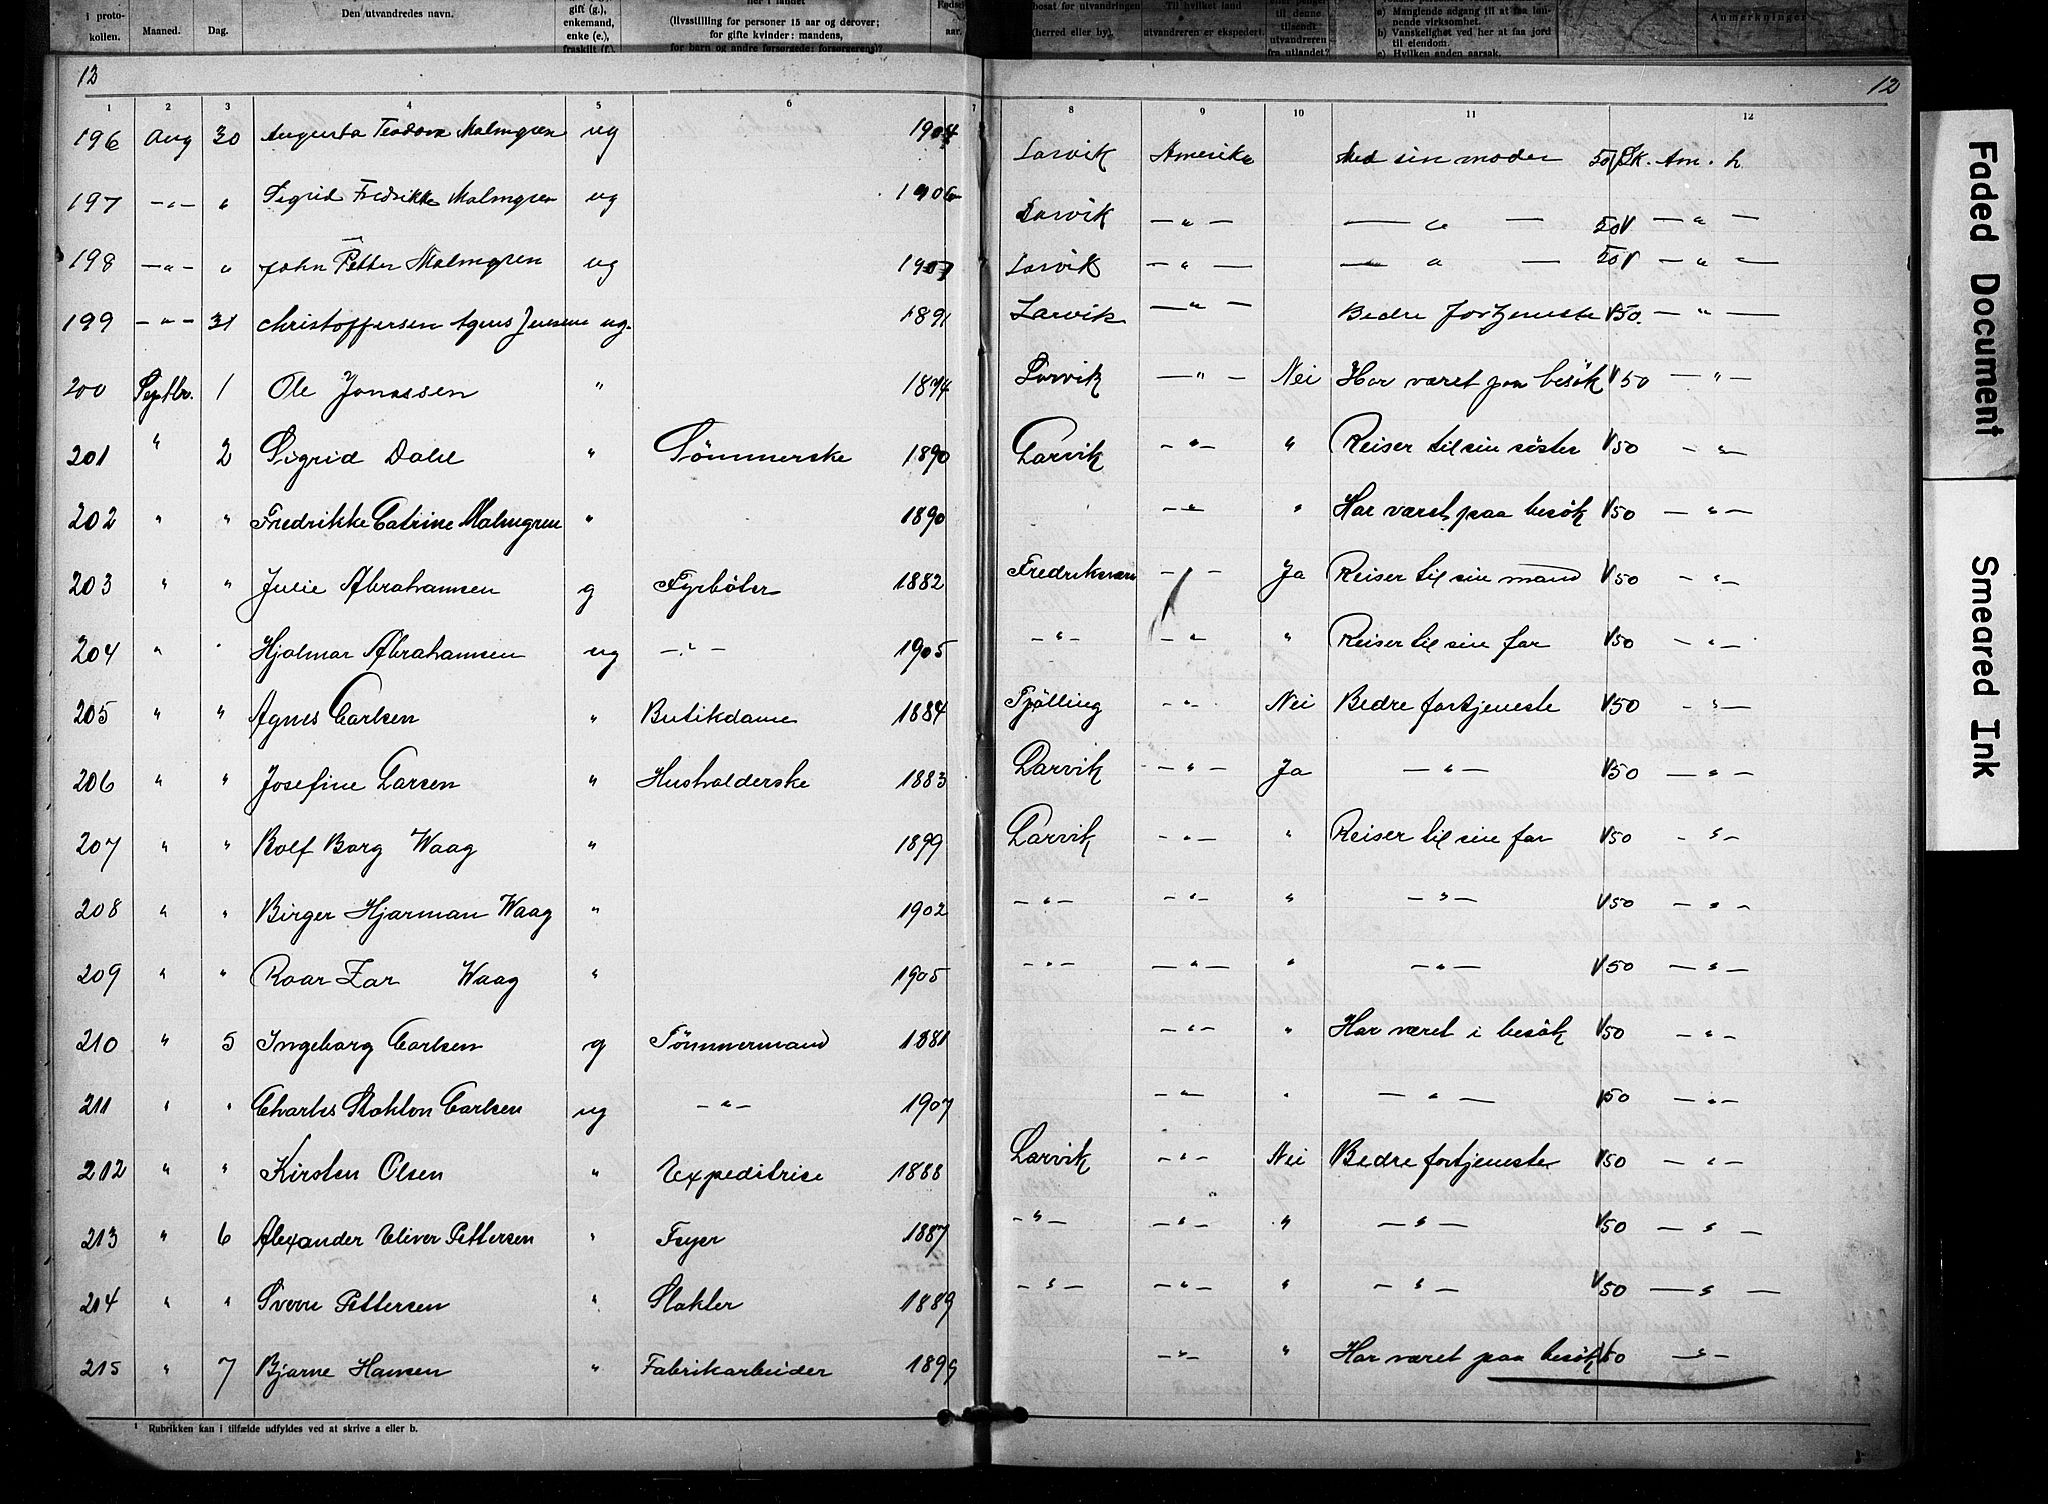 i proto-
kollen.
Maaned.
Dag.
Den utvandredes navn.
gift (g.),
enkemand,
enke (e.),
fraskilt (f.)
her i landet
(livsstilling for personer 15 aar og derover;
for gifte kvinder: mandens,
for barn og andre forsørgede: forsørgerens)?
aar.
bosat før utvandringen
(herred eller by).
Til hvilket land
utvandreren er ekspedert.
til denne
tilsendt
utvandreren
fra utlandet?
a) Manglende adgang til at faa løn-
nende virksomhet.
b) Vanskelighet ved her at faa jord
til eiendom.
c) Hvilken anden aarsak.
Anmerkninger
12 12
1 2 3 4 5 6 7 8 9 10 11 12
196 Aug 30 Augusta Teodora Malmgren ug 1904 Larvik Amerika Med sin moder 50 Sk. Am. L
197 —„— „ Sigrid Fredrikke Malmgren ug 1906 Larvik —„— — „ — 50 — „ —
198 —„— „ John Petter Malmgren ug 1907 Larvik —„— — „ — 50 — „ —
199 —„— 31 Christoffersen Agnes Jensine ug. 1891 Larvik —„— Bedre Fortjeneste 50. — „ —
200 Septbr. 1 Ole Jonassen „ 1874 Larvik —„— Nei Har været paa besök 50 —„—
201 „ 2 Sigrid Dahl „ Sömmerske 1890 Larvik —„— „ Reiser til sin söster 50 —„—
202 „ „ Fredrikke Catrine Malmgren „ 1890 —„— „ Har været paa besök 50 —„—
203 „ „ Julie Abrahamsen g Fyrböter 1882 Fredriksværn —„— Ja Reiser til sin mand 50 —„—
204 „ „ Hjalmar Abrahamsen ug —„— 1905 —„— —„— „ Reiser til sin far 50 —„—
205 „ „ Agnes Carlsen „ Butikdame 1884 Tjölling —„— Nei Bedre fortjeneste 50 —„—
206 „ „ Josefine Larsen „ Husholderske 1883 Larvik —„— Ja —„— 50 —„—
207 „ „ Rolf Borg Waag „ 1899 Larvik —„— „ Reiser til sin far 50 —„—
208 „ „ Birger Hjarman Waag „ 1902 —„— —„— „ —„— 50 —„—
209 „ „ Roar Zar Waag „ 1905 —„— —„— „ —„— 50 —„—
210 „ 5 Ingeborg Carlsen g Tömmermand 1881 —„— „ Har været i besök 50 —„—
211 „ „ Charles Stokton Carlsen ug —„— 1907 —„— „ —„— 50 —„—
212 „ „ Kirsten Olsen „ Expeditrise 1888 Larvik —„— Nei Bedre fortjeneste 50 —„—
213 „ 6 Alexander Oliver Pettersen „ 1887 —„— —„— „ —„— 50 —„—
214 „ „ Pettersen „ Slakter 1889 —„— —„— „ —„— 50 —„—
215 „ 7 Bjarne Hansen „ Fabrikarbeider 1899 —„— „ Har været paa besök 50 —„—
¹ Rubrikken kan i tilfælde udfyldes ved at skrive a eller b.
Faded Document
Smeared Ink